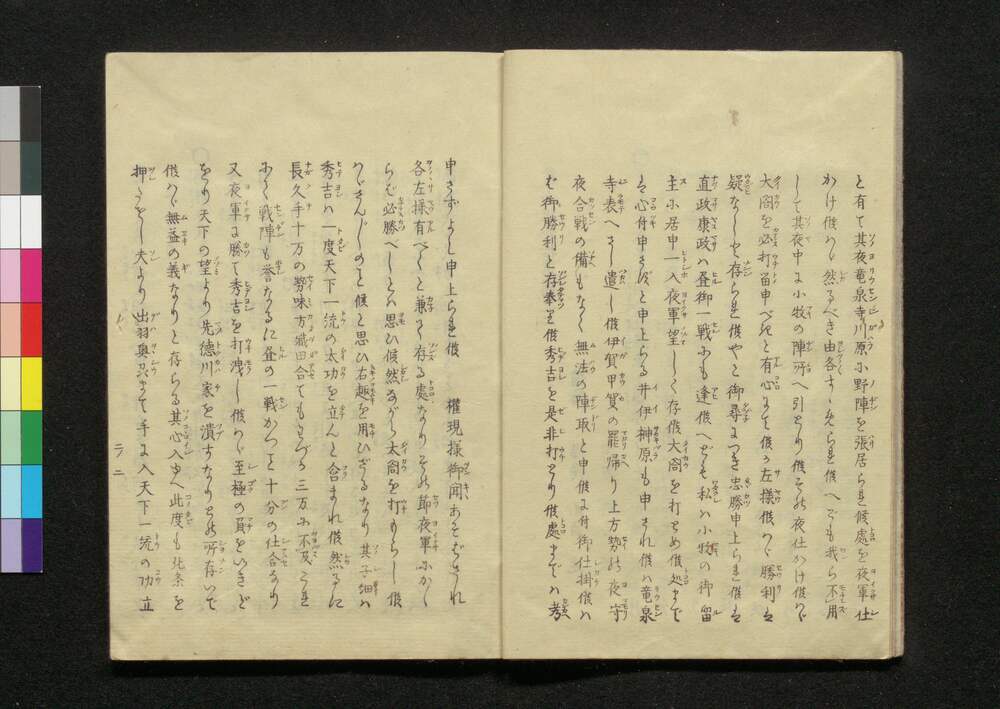 と有て其夜竜泉寺川原小野陣を張居られ候處を夜軍仕
かけ候ハヽ然るべき由各すゝめられ候へども我ら不用
して其夜中に小牧の陣所へ引とり候其夜仕かけ候ハヽ
大閤を必打留申べきと有心にて候か左様候ハヽ勝利は
疑なしや存られ候やと御尋につき忠勝申上られ候は
直政康政ハ昼御一戦にも逢候へども私ハ小牧の御留
主に居申一入夜軍望しく存候大閤を打とめ候処まで
は心付申さずと申上らる井伊榊原も申され候ハ竜泉
寺表へさし遣し候伊賀甲賀の罷帰り上方勢は夜守
夜合戦の備もなく無法の陣取と申候に付御仕掛候ハ
む御勝利と存奉り候秀吉を是非打とり候處までハ考
申さずよし申上られ候　権現様御聞あそばされ
各左様有べくと兼て存る處なり其節夜軍にかく
らば必勝べしとハ思ひ候然ながら太閤を打もらし候
ハヽさんしのと候と思ひ右趣を用ひざるなり其子細ハ
秀吉ハ一度天下一流の大功を立んと合まれ候然るに
長久手十万の勢味方織田合てもわづる三万に不及これ
にく戦陣も誉なるに昼の一戦かつこと十分の仕合なり
又夜軍に勝て秀吉を打洩し候ハヽ至極の負をいきど
をり天下の望より先徳川家を潰すなりと所存いで
候ハヽ無益の義なりと存らる其心入ゆへ此度も北条を
押たをし夫より出羽奥羽まて手に入天下一流の功立
二ノ二